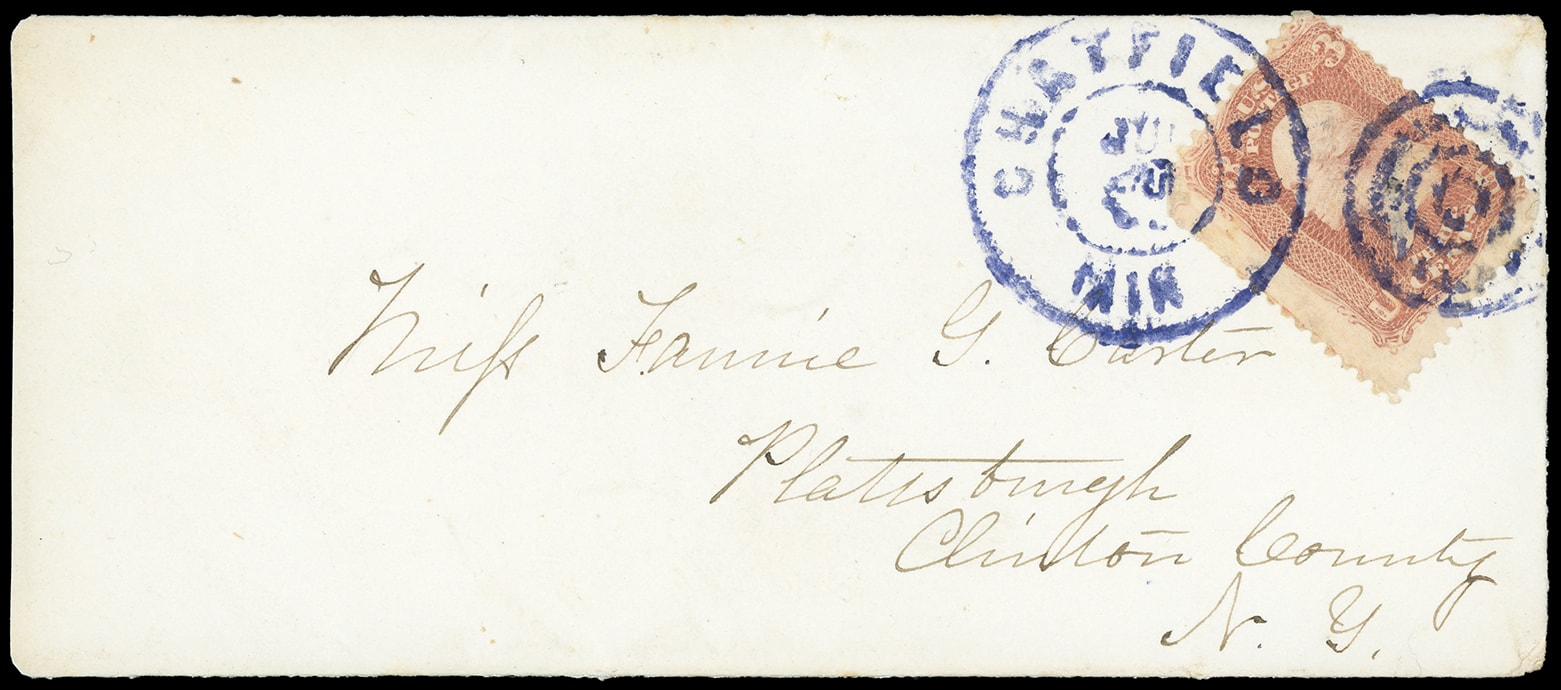 CHATFIELD
JU
MIN
3
U.S. POSTAGE
Miſs Fannie G. Custer
Plattsburgh
Clinton County
N. Y.